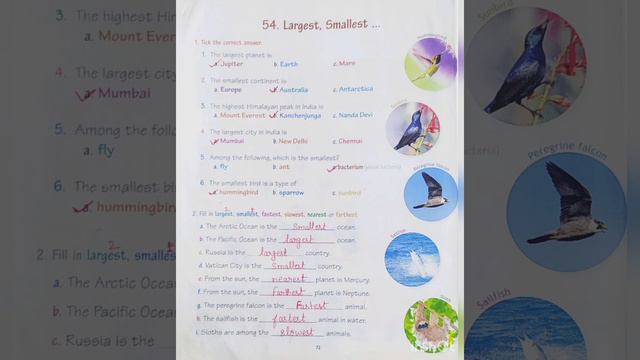 54. Largest, Smallest ...
1. Tick the correct answer.
1. The largest planet is
a. Jupiter b. Earth c. Mars
2. The smallest continent is
a. Europe b. Australia c. Antarctica
3. The highest Himalayan peak in India is
a. Mount Everest b. Kanchenjunga c. Nanda Devi
4. The largest city in India is
a. Mumbai b. New Delhi c. Chennai
5. Among the following, which is the smallest?
a. fly b. ant c. bacterium
6. The smallest bird is a type of
a. hummingbird b. sparrow c. sunbird
2. Fill in largest, smallest, fastest, slowest, nearest or farthest.
a. The Arctic Ocean is the smallest ocean.
b. The Pacific Ocean is the largest ocean.
c. Russia is the largest country.
d. Vatican City is the smallest country.
e. From the sun, the nearest planet is Mercury.
f. From the sun, the farthest planet is Neptune.
g. The peregrine falcon is the Fastest animal.
h. The sailfish is the fastest animal in water.
i. Sloths are among the slowest animals.
72
Peregrine falcon
3. The highest Him
a. Mount Everes
4. The largest city
a. Mumbai
5. Among the follo
a. fly
6. The smallest bi
a. hummingbird
2. Fill in largest, smalles
a. The Arctic Ocea
b. The Pacific Ocea
c. Russia is the
Sunbird
Peregrine falcon
Sailfish